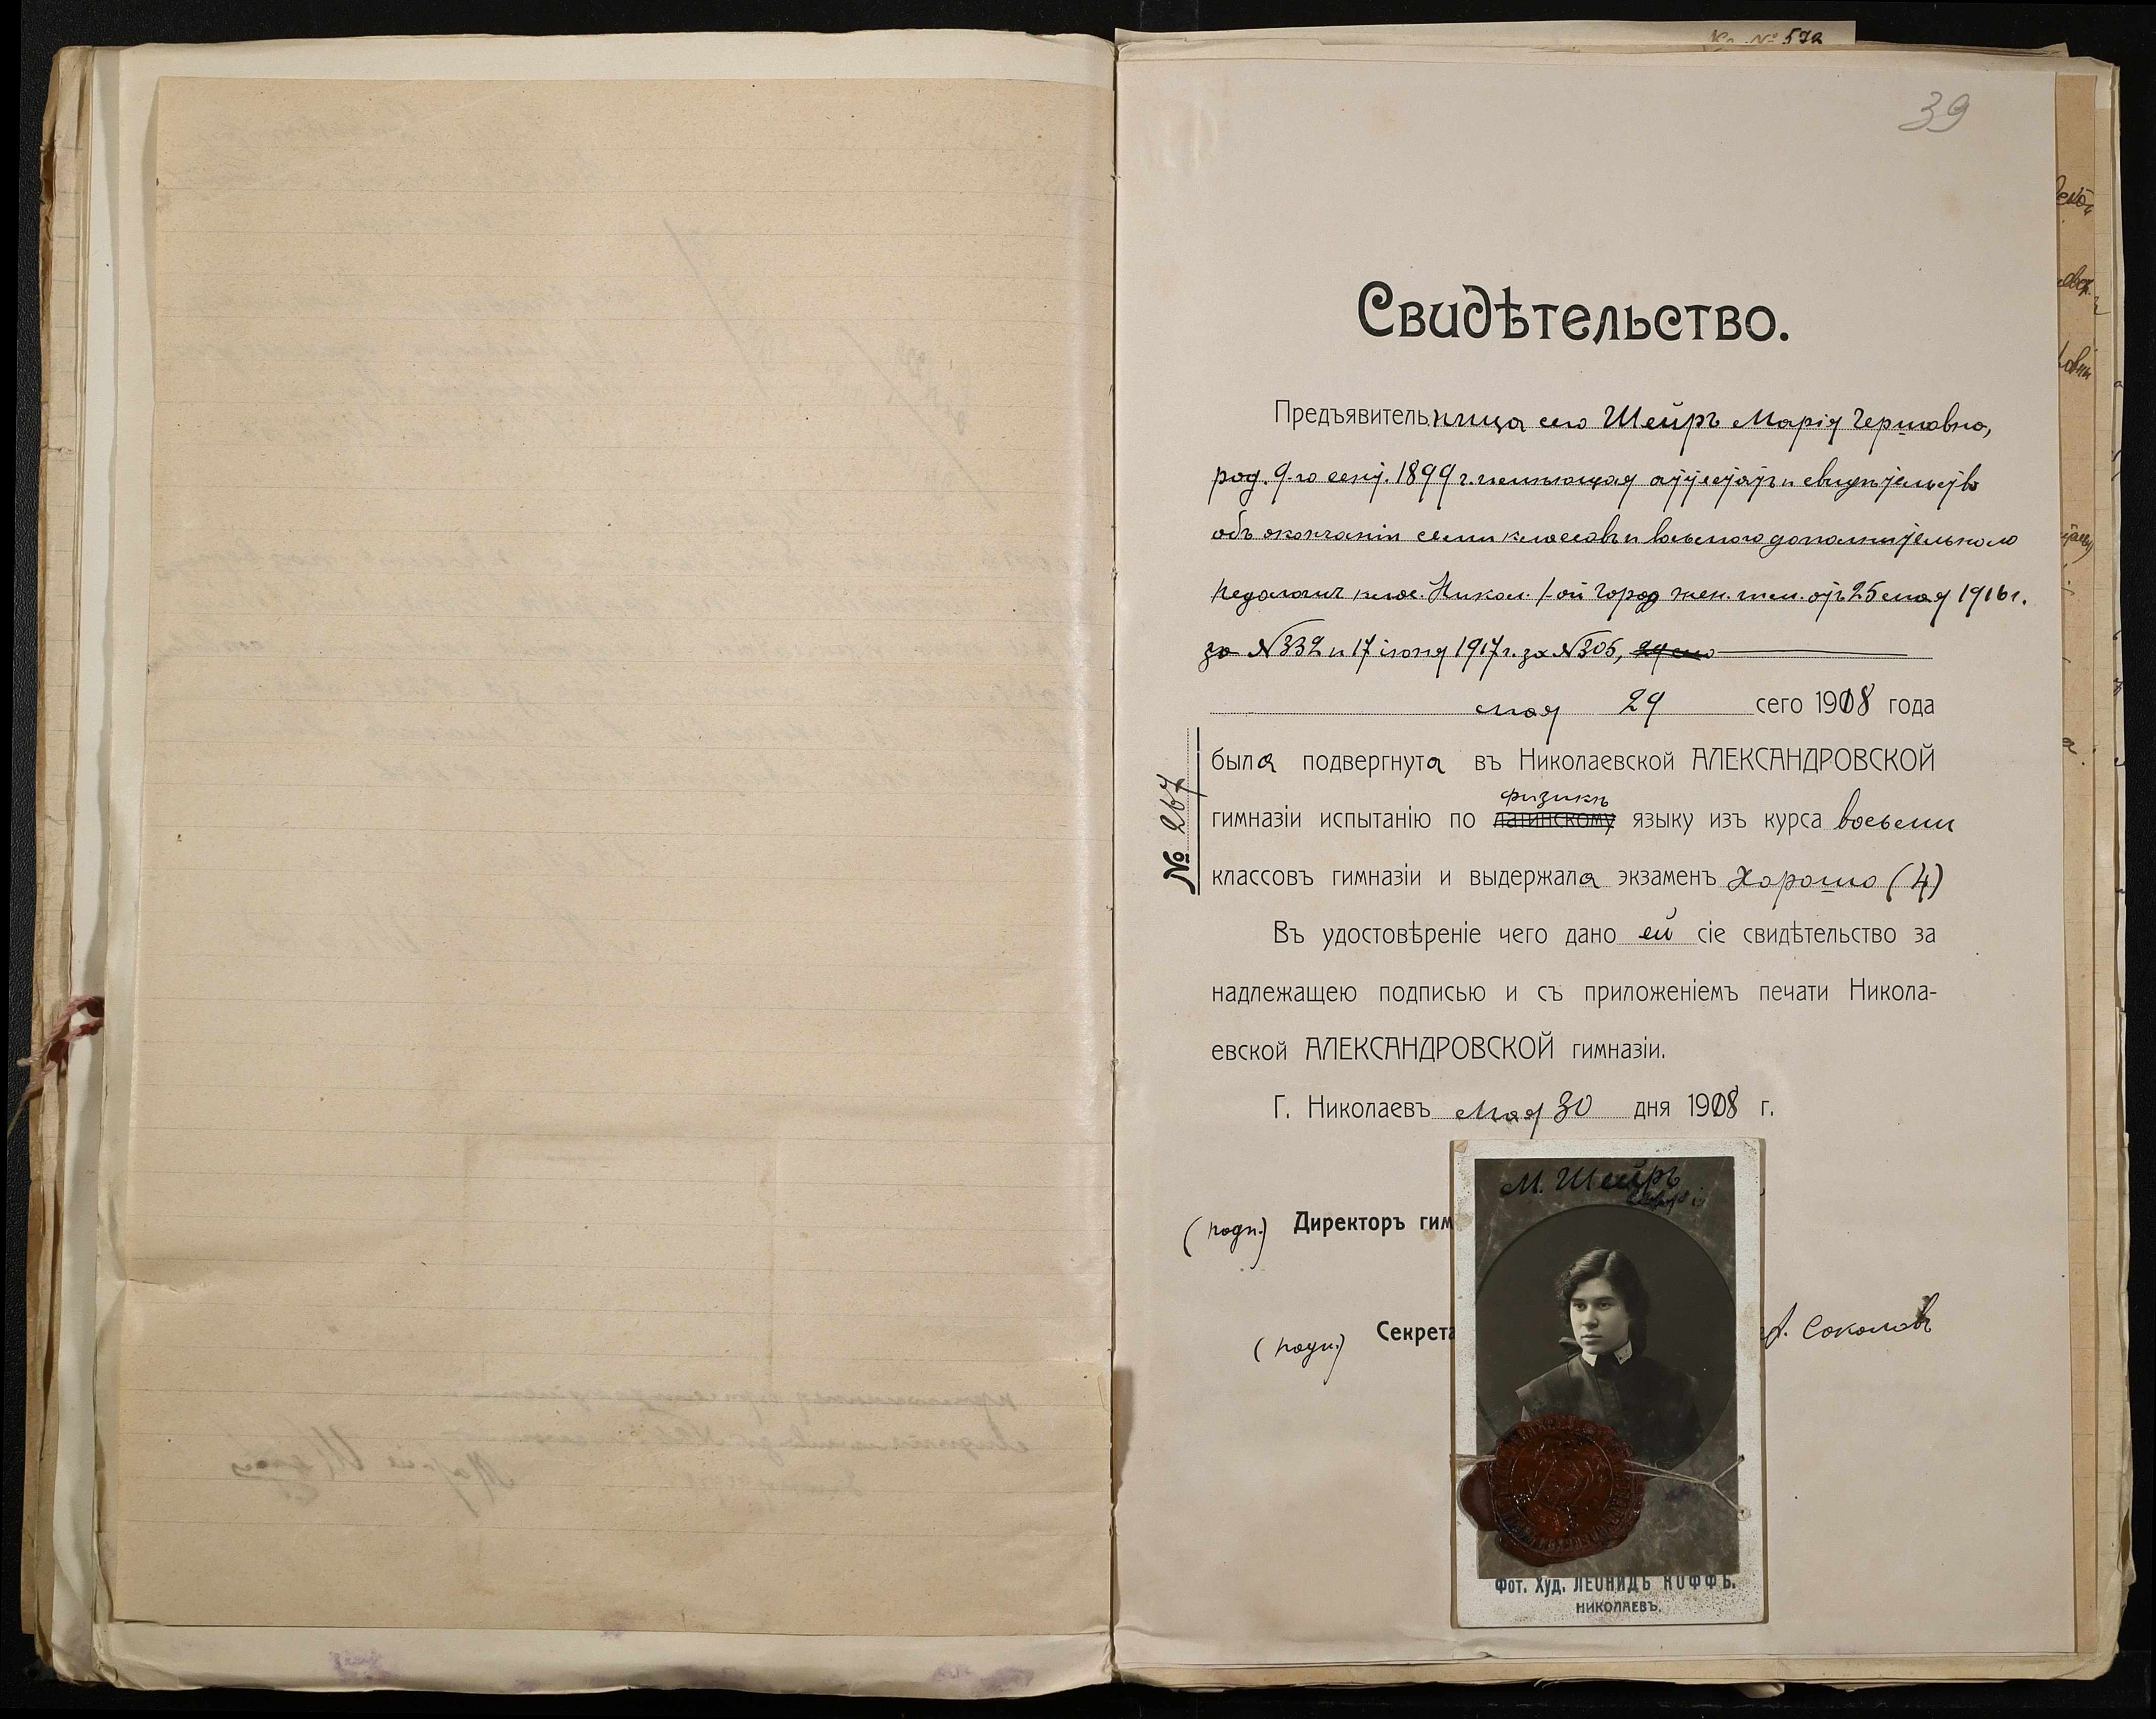 № 572
39
Свидѣтельство.
Предъявительница сего Шейръ Марія Гершовна,
род. 9-го сент. 1899 г. имѣющая аттестатъ и свидѣтельство
объ окончаніи семи классовъ и восьмого дополнительнаго
педагогич клас. Никол. 1-ой Город жен. гим. отъ 25 мая 1916 г.
за №332 и 17 іюня 1917 г. за №305,
мая 29 сего 1918 года
была подвергнута въ Николаевской АЛЕКСАНДРОВСКОЙ
физикѣ
гимназіи испытанію по латинскому языку изъ курса восьми
классовъ гимназіи и выдержала экзаменъ хорошо (4)
№ 267
Въ удостовѣреніе чего дано ей сіе свидѣтельство за
надлежащею подписью и съ приложеніемъ печати Никола-
евской АЛЕКСАНДРОВСКОЙ гимназіи.
Г. Николаевъ Мая 30 дня 1918 г.
М. Шейръ
(подп.) Директоръ гим
(подп.) Секрета
Соколовъ
Фот. Худ. ЛЕОНИДЪ КОФФЪ.
НИКОЛАЕВЪ.